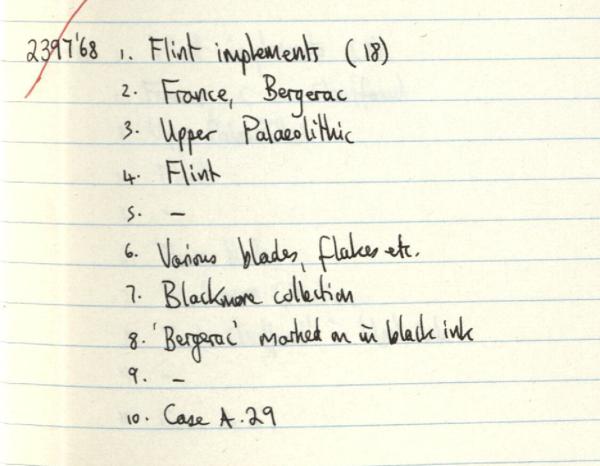 2397'68 1. Flint implements (18)
2. France, Bergerac
3. Upper Palaeolithic
4. Flint
5. –
6. Various blades, flakes etc.
7. Blackmore collection
8. 'Bergerac' marked on in black ink
9. –
10. Case A.29